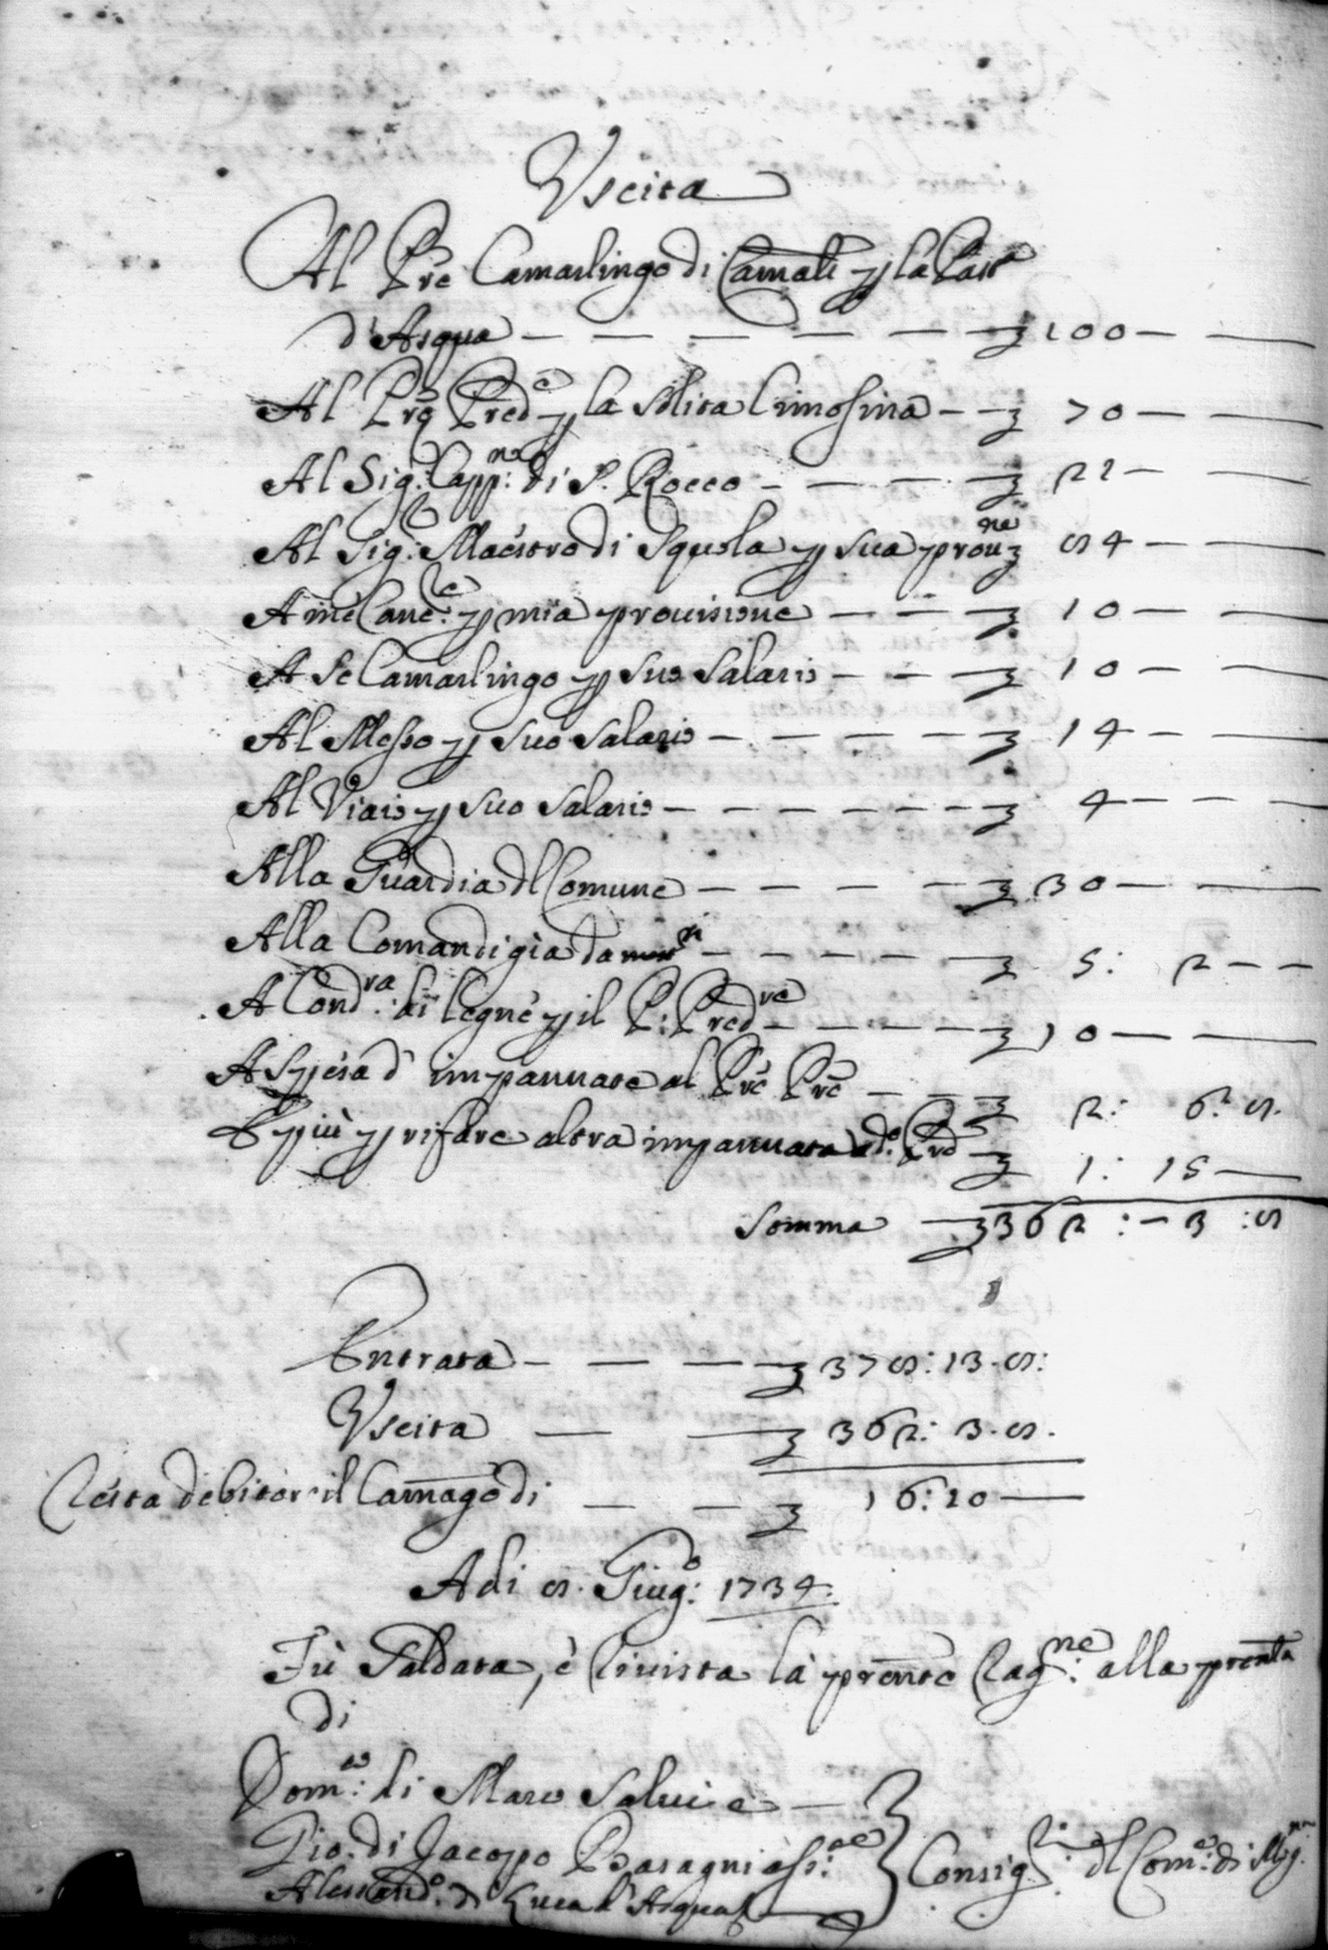 Vscita
Al Pre Camarlingo di Camali p la Past
d'Asqua — — — — — — 100 —
Al Pre Pred.e p la solita limosina — — 70 —
Al Sig.r Capp.no di S. Rocco — — — — 22 —
Al Sig.r Maéstro di Squola p sua prou.ne 54 —
A me Canc.re p mia prouisione — — — 10 —
A Se Camarlingo p suo Salario — — — 10 —
Al Messo p suo salario — — — — — 14 —
Al Viaio p suo salario — — — — — 4 — — —
Alla Guardia dl Comune — — — — 30 —
Alla Comandigia — — — — — 5: 2 — —
A Cond.ra di legne p il P: Pred.re — — — — 10 —
A Spesa d' impannate al Pre Pre — — — 2: 6. 5.
E più p rifare altra impannata — 1: 15 —
Somma — 362 : — 3 : 5
Entrata — — — — 375: 13. 5:
Vscita — — 362: 3. 5.
Résta debitor il Camago di — — — 1 6: 10 —
A di 5. Giug.o: 1734.
Fù Saldata, è Riuista la prente Rag.ne: alla prenza
di
Dom.co: di Marco Salui e —
Gio. di Jacopo
Alessand.o: di Luca d' Asqua
Consig.ri: dl Com.e: di